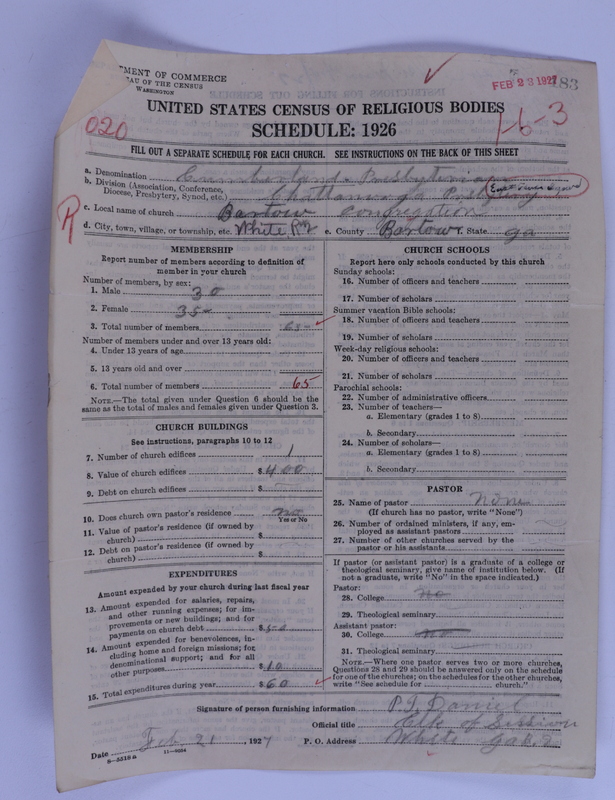 MENT OF COMMERCE
AU OF THE CENSUS
WASHINGTON
FEB 23 1927
483
UNITED STATES CENSUS OF RELIGIOUS BODIES
020
SCHEDULE: 1926
1-6-3
FILL OUT A SEPARATE SCHEDULE FOR EACH CHURCH. SEE INSTRUCTIONS ON THE BACK OF THIS SHEET
a. Denomination Cumberland Presbyterian
b. Division (Association, Conference, Diocese, Presbytery, Synod, etc.) Chattanooga Presbytery
R
c. Local name of church Bartow Congregation
d. City, town, village, or township, etc. White R 2 e. County Bartow State Ga
MEMBERSHIP
Report number of members according to definition of
member in your church
Number of members, by sex:
1. Male 30
2. Female 35
3. Total number of members 65
Number of members under and over 13 years old:
4. Under 13 years of age
5. 13 years old and over
6. Total number of members 65
NOTE.—The total given under Question 6 should be
same as the total of males and females given under Question 3.
CHURCH BUILDINGS
See instructions, paragraphs 10 to 12
7. Number of church edifices 1
8. Value of church edifices $400
9. Debt on church edifices $
10. Does church own pastor's residence no
Yes or No
11. Value of pastor's residence (if owned by
church) $
12. Debt on pastor's residence (if owned by
church) $
EXPENDITURES
Amount expended by your church during last fiscal year
13. Amount expended for salaries, repairs,
and other running expenses; for im-
provements or new buildings; and for
payments on church debt $50
14. Amount expended for benevolences, in-
cluding home and foreign missions; for
denominational support; and for all
other purposes $10
15. Total expenditures during year $60
CHURCH SCHOOLS
Report here only schools conducted by this church
Sunday schools:
16. Number of officers and teachers
17. Number of scholars
Summer vacation Bible schools:
18. Number of officers and teachers
19. Number of scholars
Week-day religious schools:
20. Number of officers and teachers
21. Number of scholars
Parochial schools:
22. Number of administrative officers
23. Number of teachers—
a. Elementary (grades 1 to 8)
b. Secondary
24. Number of scholars—
a. Elementary (grades 1 to 8)
b. Secondary
PASTOR
25. Name of pastor None
(If church has no pastor, write "None")
26. Number of ordained ministers, if any, em-
ployed as assistant pastors
27. Number of other churches served by the
pastor or his assistants
If pastor (or assistant pastor) is a graduate of a college or
theological seminary, give name of institution below. (If
not a graduate, write "No" in the space indicated.)
Pastor:
28. College No
29. Theological seminary
Assistant pastor:
30. College No
31. Theological seminary
NOTE.—Where one pastor serves two or more churches,
Questions 28 and 29 should be answered only on the schedule
for one of the churches; on the schedules for the other churches,
write "See schedule for church."
Signature of person furnishing information P.J. Daniel
Official title Clk of Session
Date Feb. 21, 1927 P. O. Address White Ga R. 2
8-5519 a 11-9054